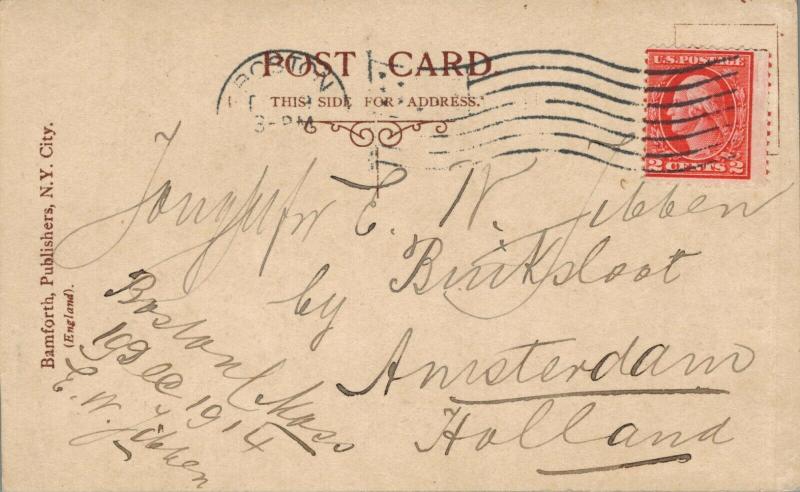 POST CARD.
THIS SIDE FOR ADDRESS.
BOSTON
3-PM
U.S. POSTAGE
2 CENTS 2
E. W. Jibben
by Buiksloot
Amsterdam
Holland
Boston Mass
19 Dec 1914
E. W. Jibben
Bamforth, Publishers, N.Y. City.
(England).